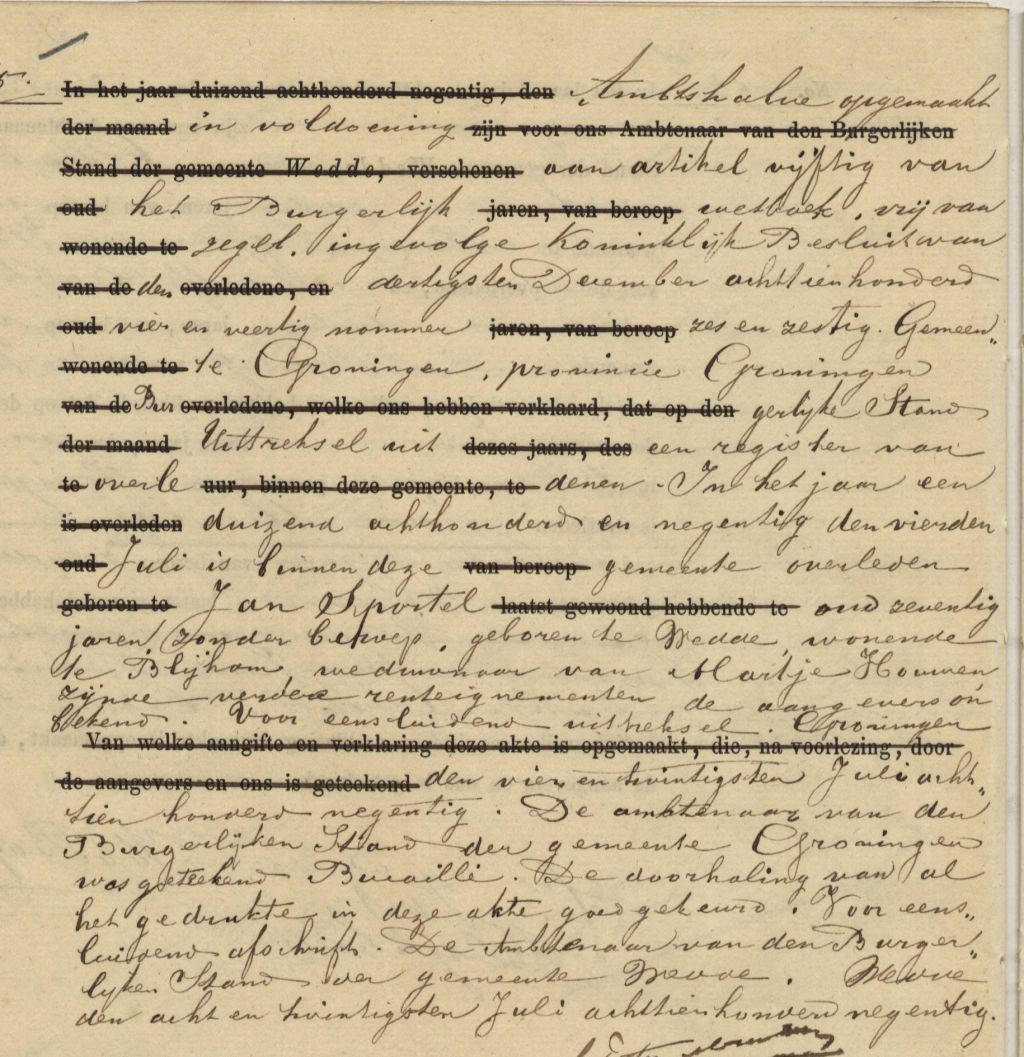 In het jaar duizend achthonderd negentig, den Ambtshalve opgemaakt
der maand in voldoening zijn voor ons Ambtenaar van den Burgerlijken
Stand der gemeente Wedde, verschenen aan artikel vijftig van
oud het Burgerlijk jaren, van beroep wetboek, vrij van
wonende te zegel, ingevolge Koninklijk Besluit van
van de den overledene, en dertigsten December achttienhonderd
oud vier en veertig nommer jaren, van beroep zes en zestig. Gemeen„
wonende te te Groningen, provincie Groningen
van de Bur overledene, welke ons hebben verklaard, dat op den gerlijke Stand
der maand Uittreksel uit dezes jaars, des een register van
te overle uur, binnen deze gemeente, te denen. In het jaar een
is overleden duizend achthonderd en negentig den vierden
oud Juli is binnen deze van beroep gemeente overleden
geboren te Jan Sportel laatst gewoond hebbende te oud zeventig
jaren, zonder beroep, geboren te Wedde, wonende
te Blijham, weduwnaar van Martje Houwen
zijnde verdere renteignementen de aangevers on
bekend. Voor eensluidend uittreksel. Groningen
Van welke aangifte en verklaring deze akte is opgemaakt, die, na voorlezing, door
de aangevers en ons is geteekend den vier en twintigsten Juli acht„
tien honderd negentig. De ambtenaar van den
Burgerlijken Stand der gemeente Groningen
was geteekend Bucaille. De doorhaling van al
het gedrukte in deze akte goedgekeurd. Voor eens„
luidend afschrift. De Ambtenaar van den Burger„
lijken Stand der gemeente Wedde. Wedde
den acht en twintigsten Juli achttienhonderd negentig.